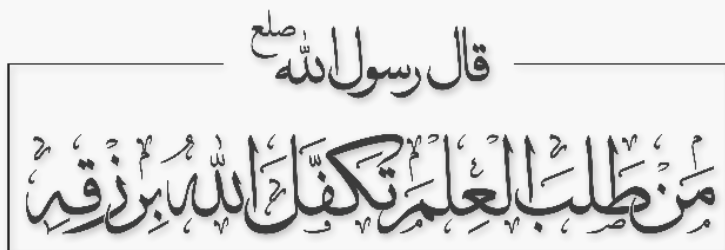 قال رسول الله صلع
مَنْ طَلَبَ الْعِلْمَ تَكَفَّلَ اللهُ بِرِزْقِهِ